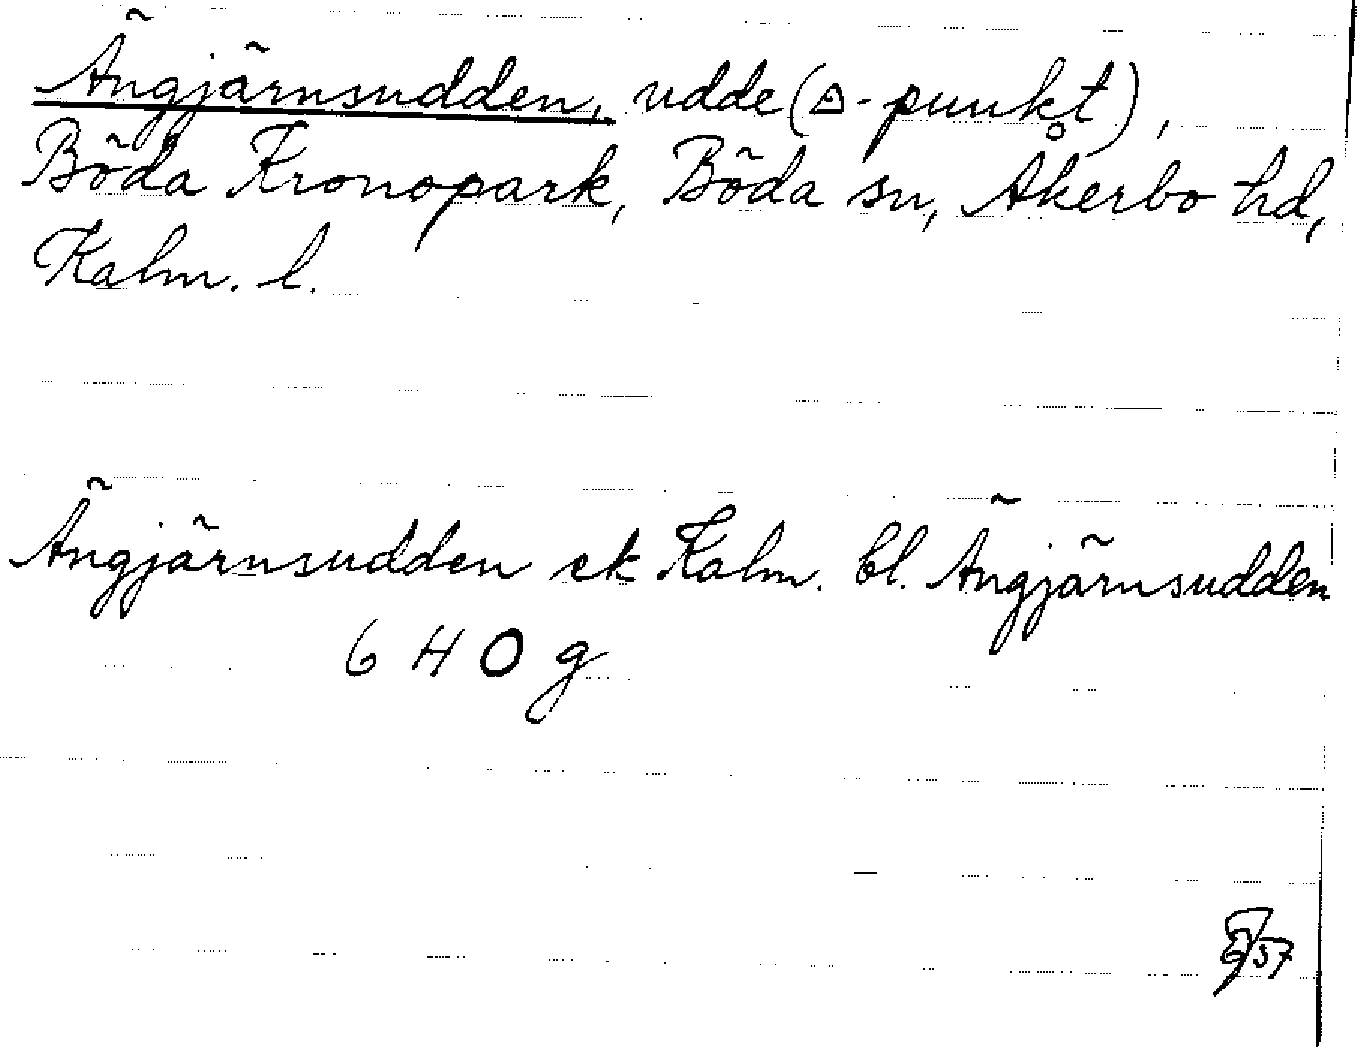 Ängjärnsudden, udde (△-punkt),
Böda Kronopark, Böda sn, Åkerbo hd,
Kalm. l.
Ängjärnsudden ek Kalm. bl. Ängjärnsudden
6 H 0 g
57